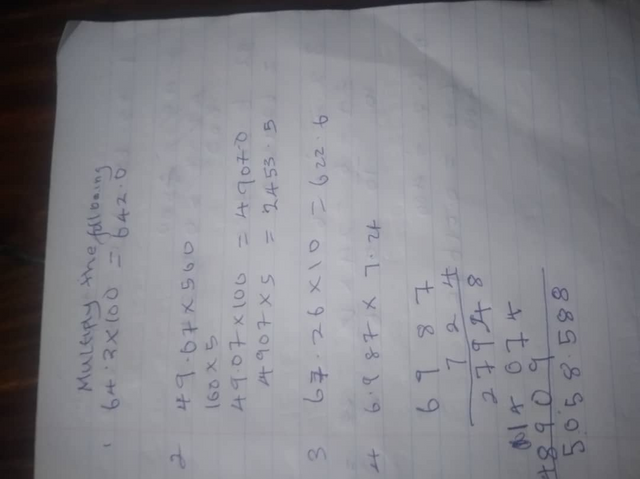 Multipy the following
1 64.2X100 = 642.0
2 49.07X500
100X5
49.07X100 = 4907.0
4907X5 = 2453.5
3 67.26X10 = 622.6
4 6.987X7.24
6987
724
27948
14074
48909
5058.588